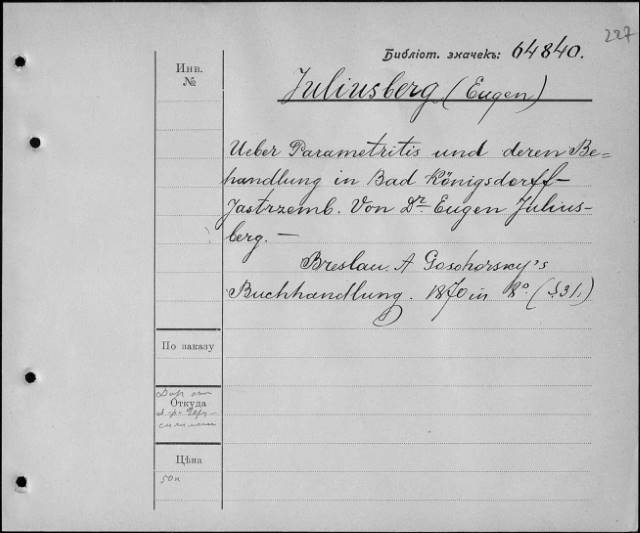 227
Библіот. значекъ: 64840.
Инв.
№
Juliusberg (Eugen)
Ueber Parametritis und deren Be=
handlung in Bad Königsdorff-
Jastrzemb. Von Dr. Eugen Julius-
berg. —
Breslau. A Goschorsky's
Buchhandlung. 1870 in 8° (S. 31.)
По заказу
Даръ отъ
Откуда
Цѣна
50к